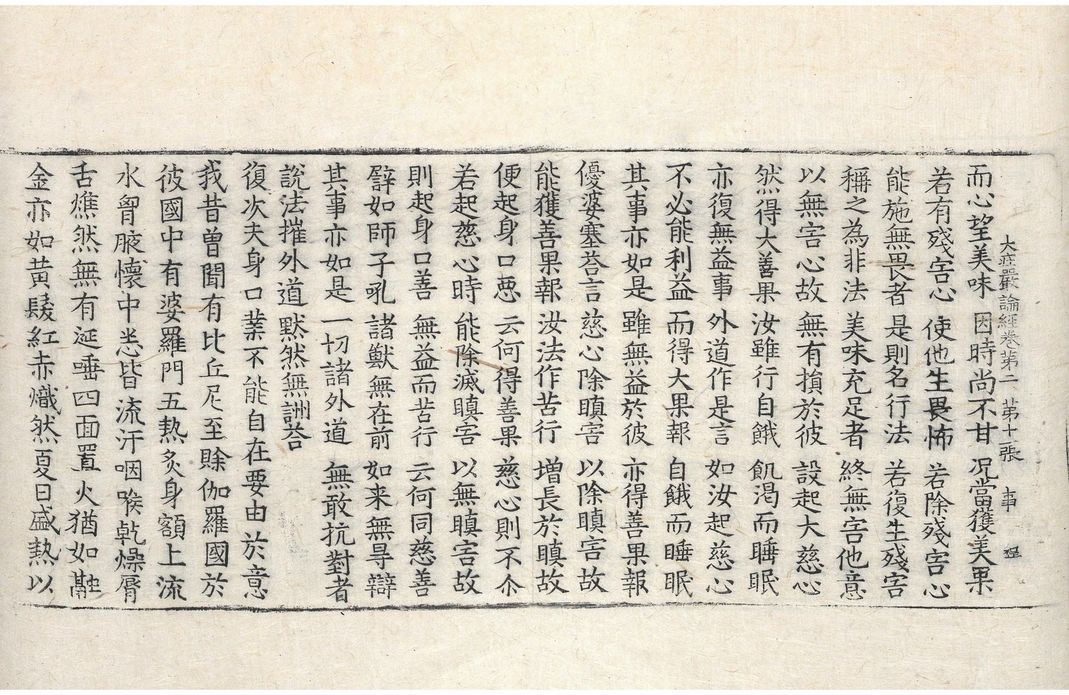 大㽵嚴論經卷第二 苐十張 事
而心望美味 因時尚不甘 况當獲美果
若有殘害心 使他生畏怖 若除殘害心
能施無畏者 是則名行法 若復生殘害
稱之為非法 美味充足者 終無害他意
以無害心故 無有損於彼 設起大慈心
然得大善果 汝雖行自餓 飢渴而睡眠
亦復無益事 外道作是言 如汝起慈心
不必能利益 而得大果報 自餓而睡眠
其事亦如是 雖無益於彼 亦得善果報
優婆塞荅言 慈心除瞋害 以除瞋害故
能獲善果報 汝法作苦行 增長於瞋故
便起身口惡 云何得善果 慈心則不尒
若起慈心時 能除滅瞋害 以無瞋害故
則起身口善 無益而苦行 云何同慈善
譬如師子吼 諸獸無在前 如来無㝵辯
其事亦如是 一切諸外道 無敢抗對者
說法摧外道 默然無詶荅
復次夫身口業不能自在要由於意
我昔曾聞有比丘尼至賖伽羅國於
彼國中有婆羅門五熱炙身額上流
水胷腋懷中悉皆流汗咽喉乾燥脣
舌燋然無有涎唾四面置火猶如融
金亦如黃髮紅赤熾然夏日盛熱以